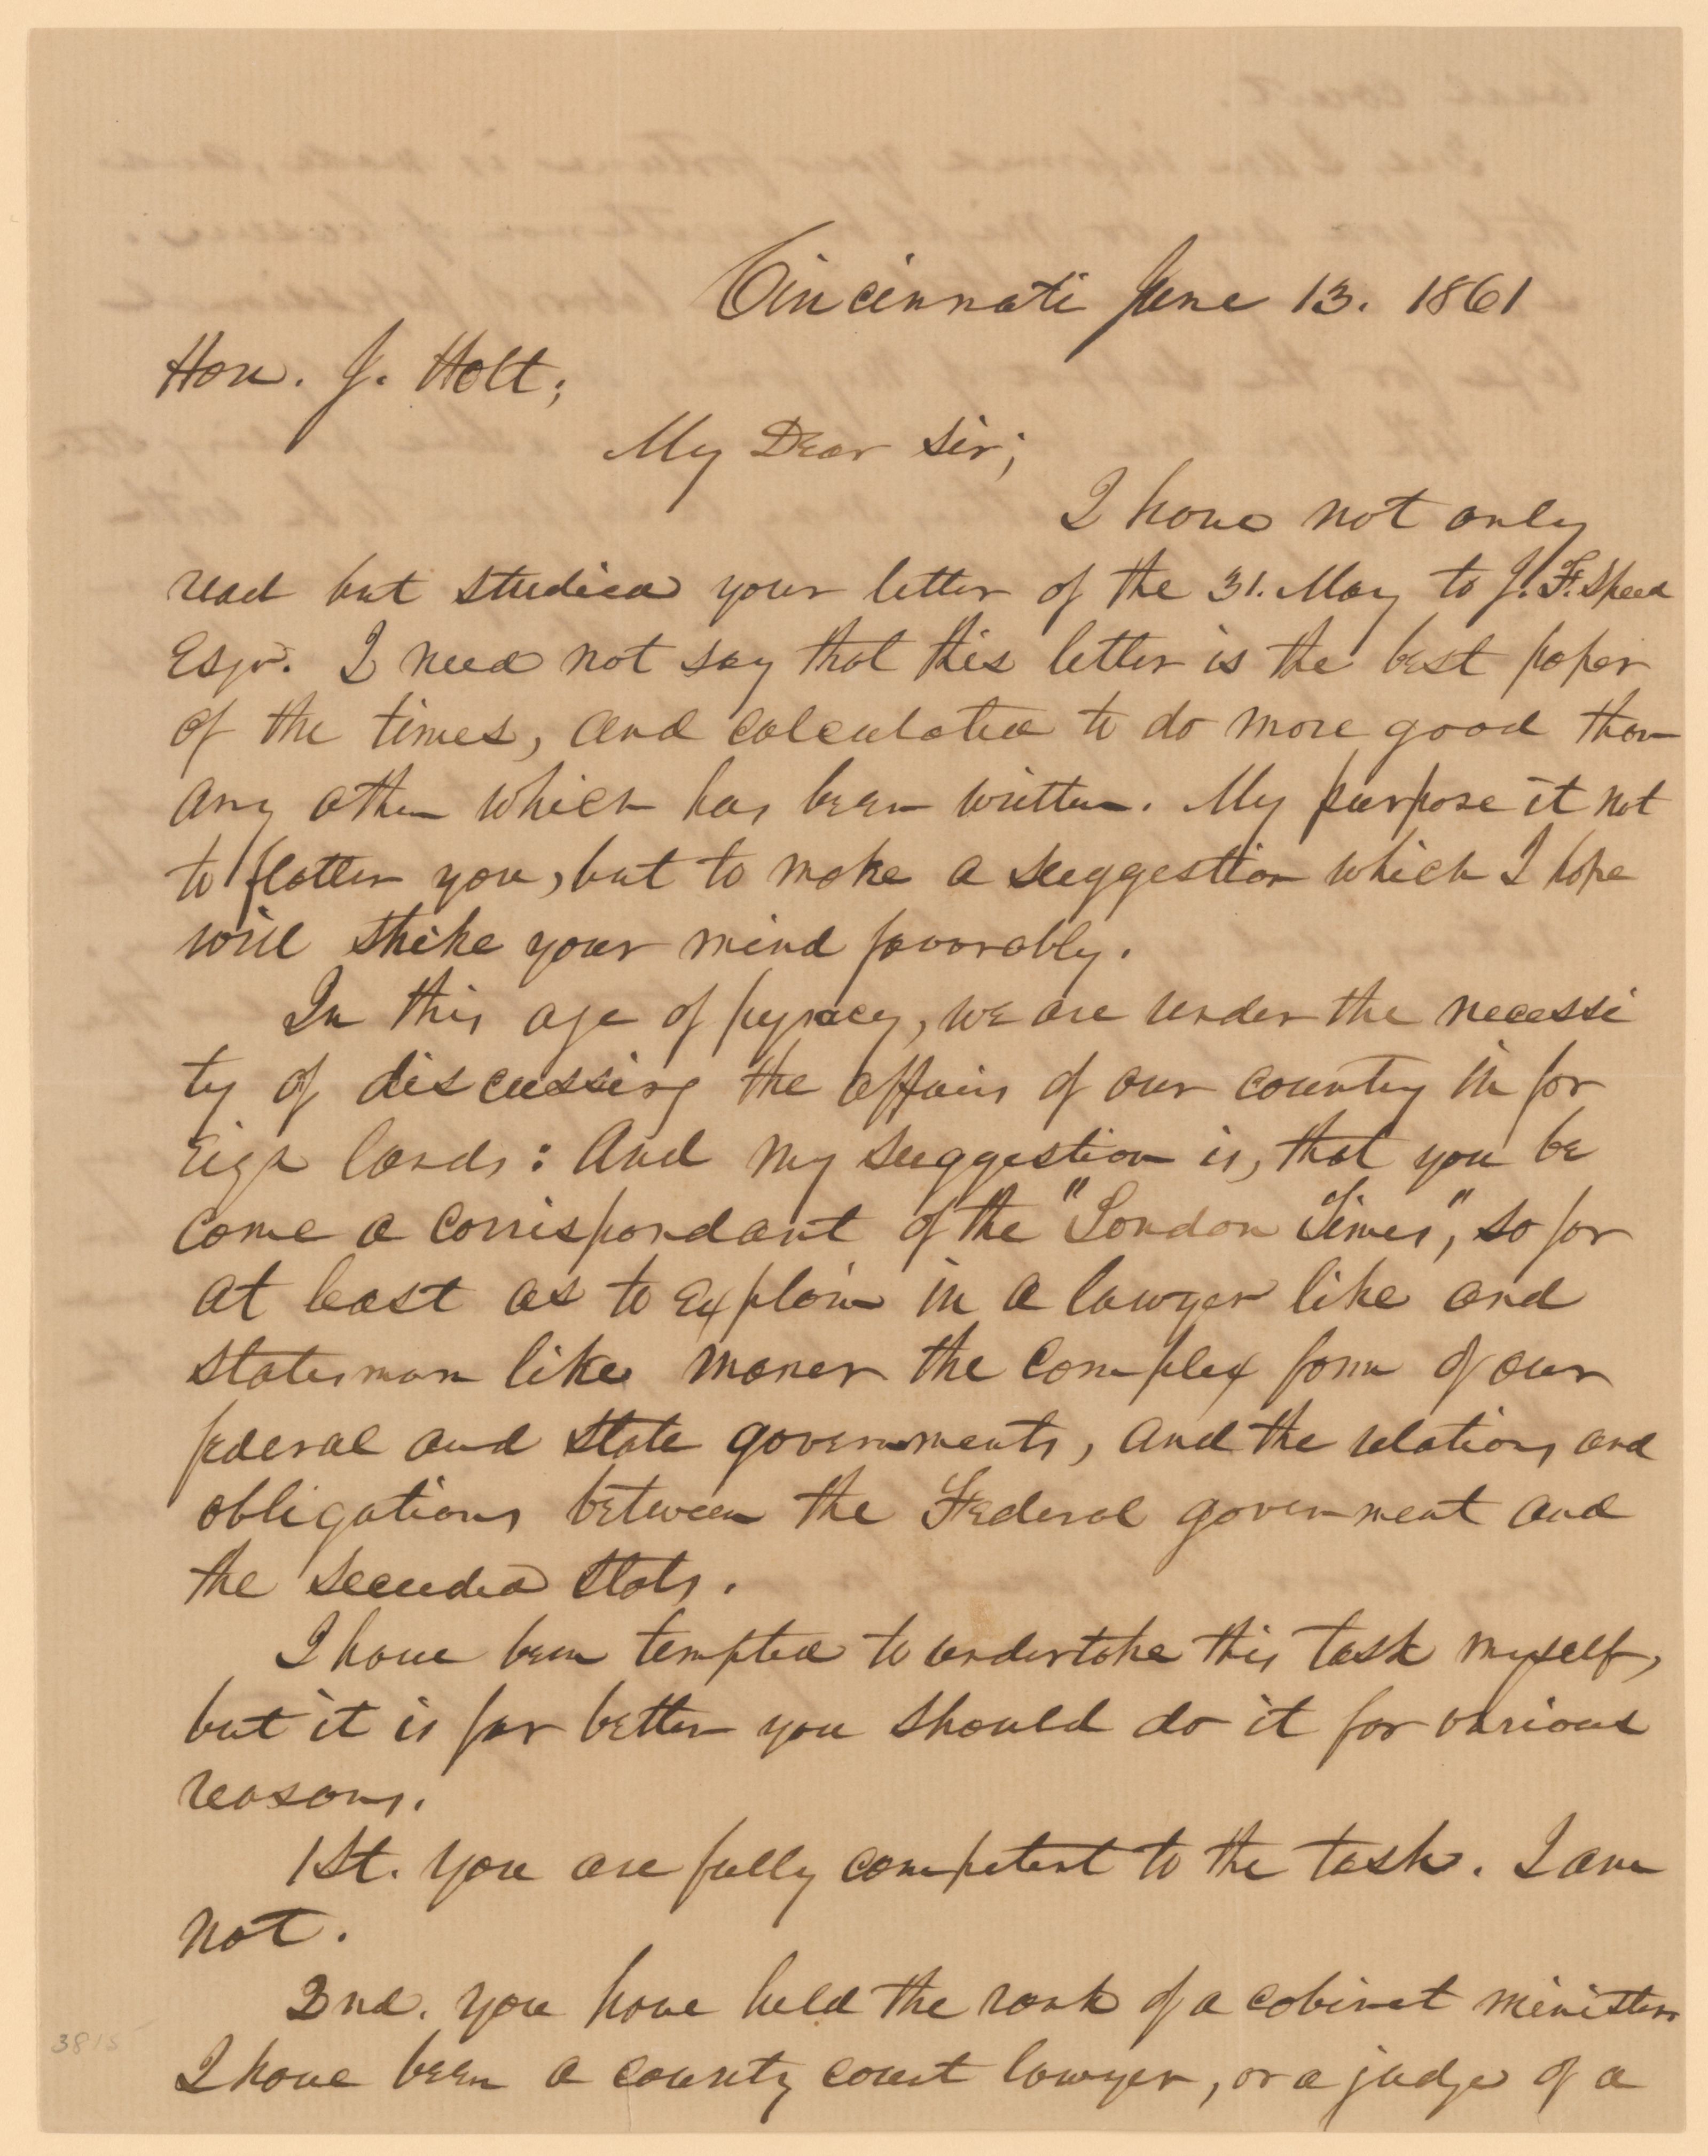 Cincinnati June 13. 1861
Hon. J. Holt;
My Dear Sir;
I have not only
read but studied your letter of the 31. May to J. F. Speed
Esqr. I need not say that this letter is the best paper
of the times, and calculated to do more good than
any other which has been written. My purpose it not
to flatter you, but to make a suggestion which I hope
will strike your mind favorably.
In this age of pyracy, we are under the necessi
ty of discussing the affairs of our country in for
eign lands: And my suggestion is, that you be
come a correspondant of the "London Times", so far
at least as to explain in a lawyer like and
statesman like maner the complex form of our
federal and state governments, and the relations and
obligations between the Federal government and
the seceeded stats.
I have been tempted to undertake this task myself,
but it is far better you should do it for various
reasons.
1st. You are fully competent to the task. I am
not.
2nd. You have held the rank of a cabinet minister
I have been a county court lawyer, or a judge of a
3815